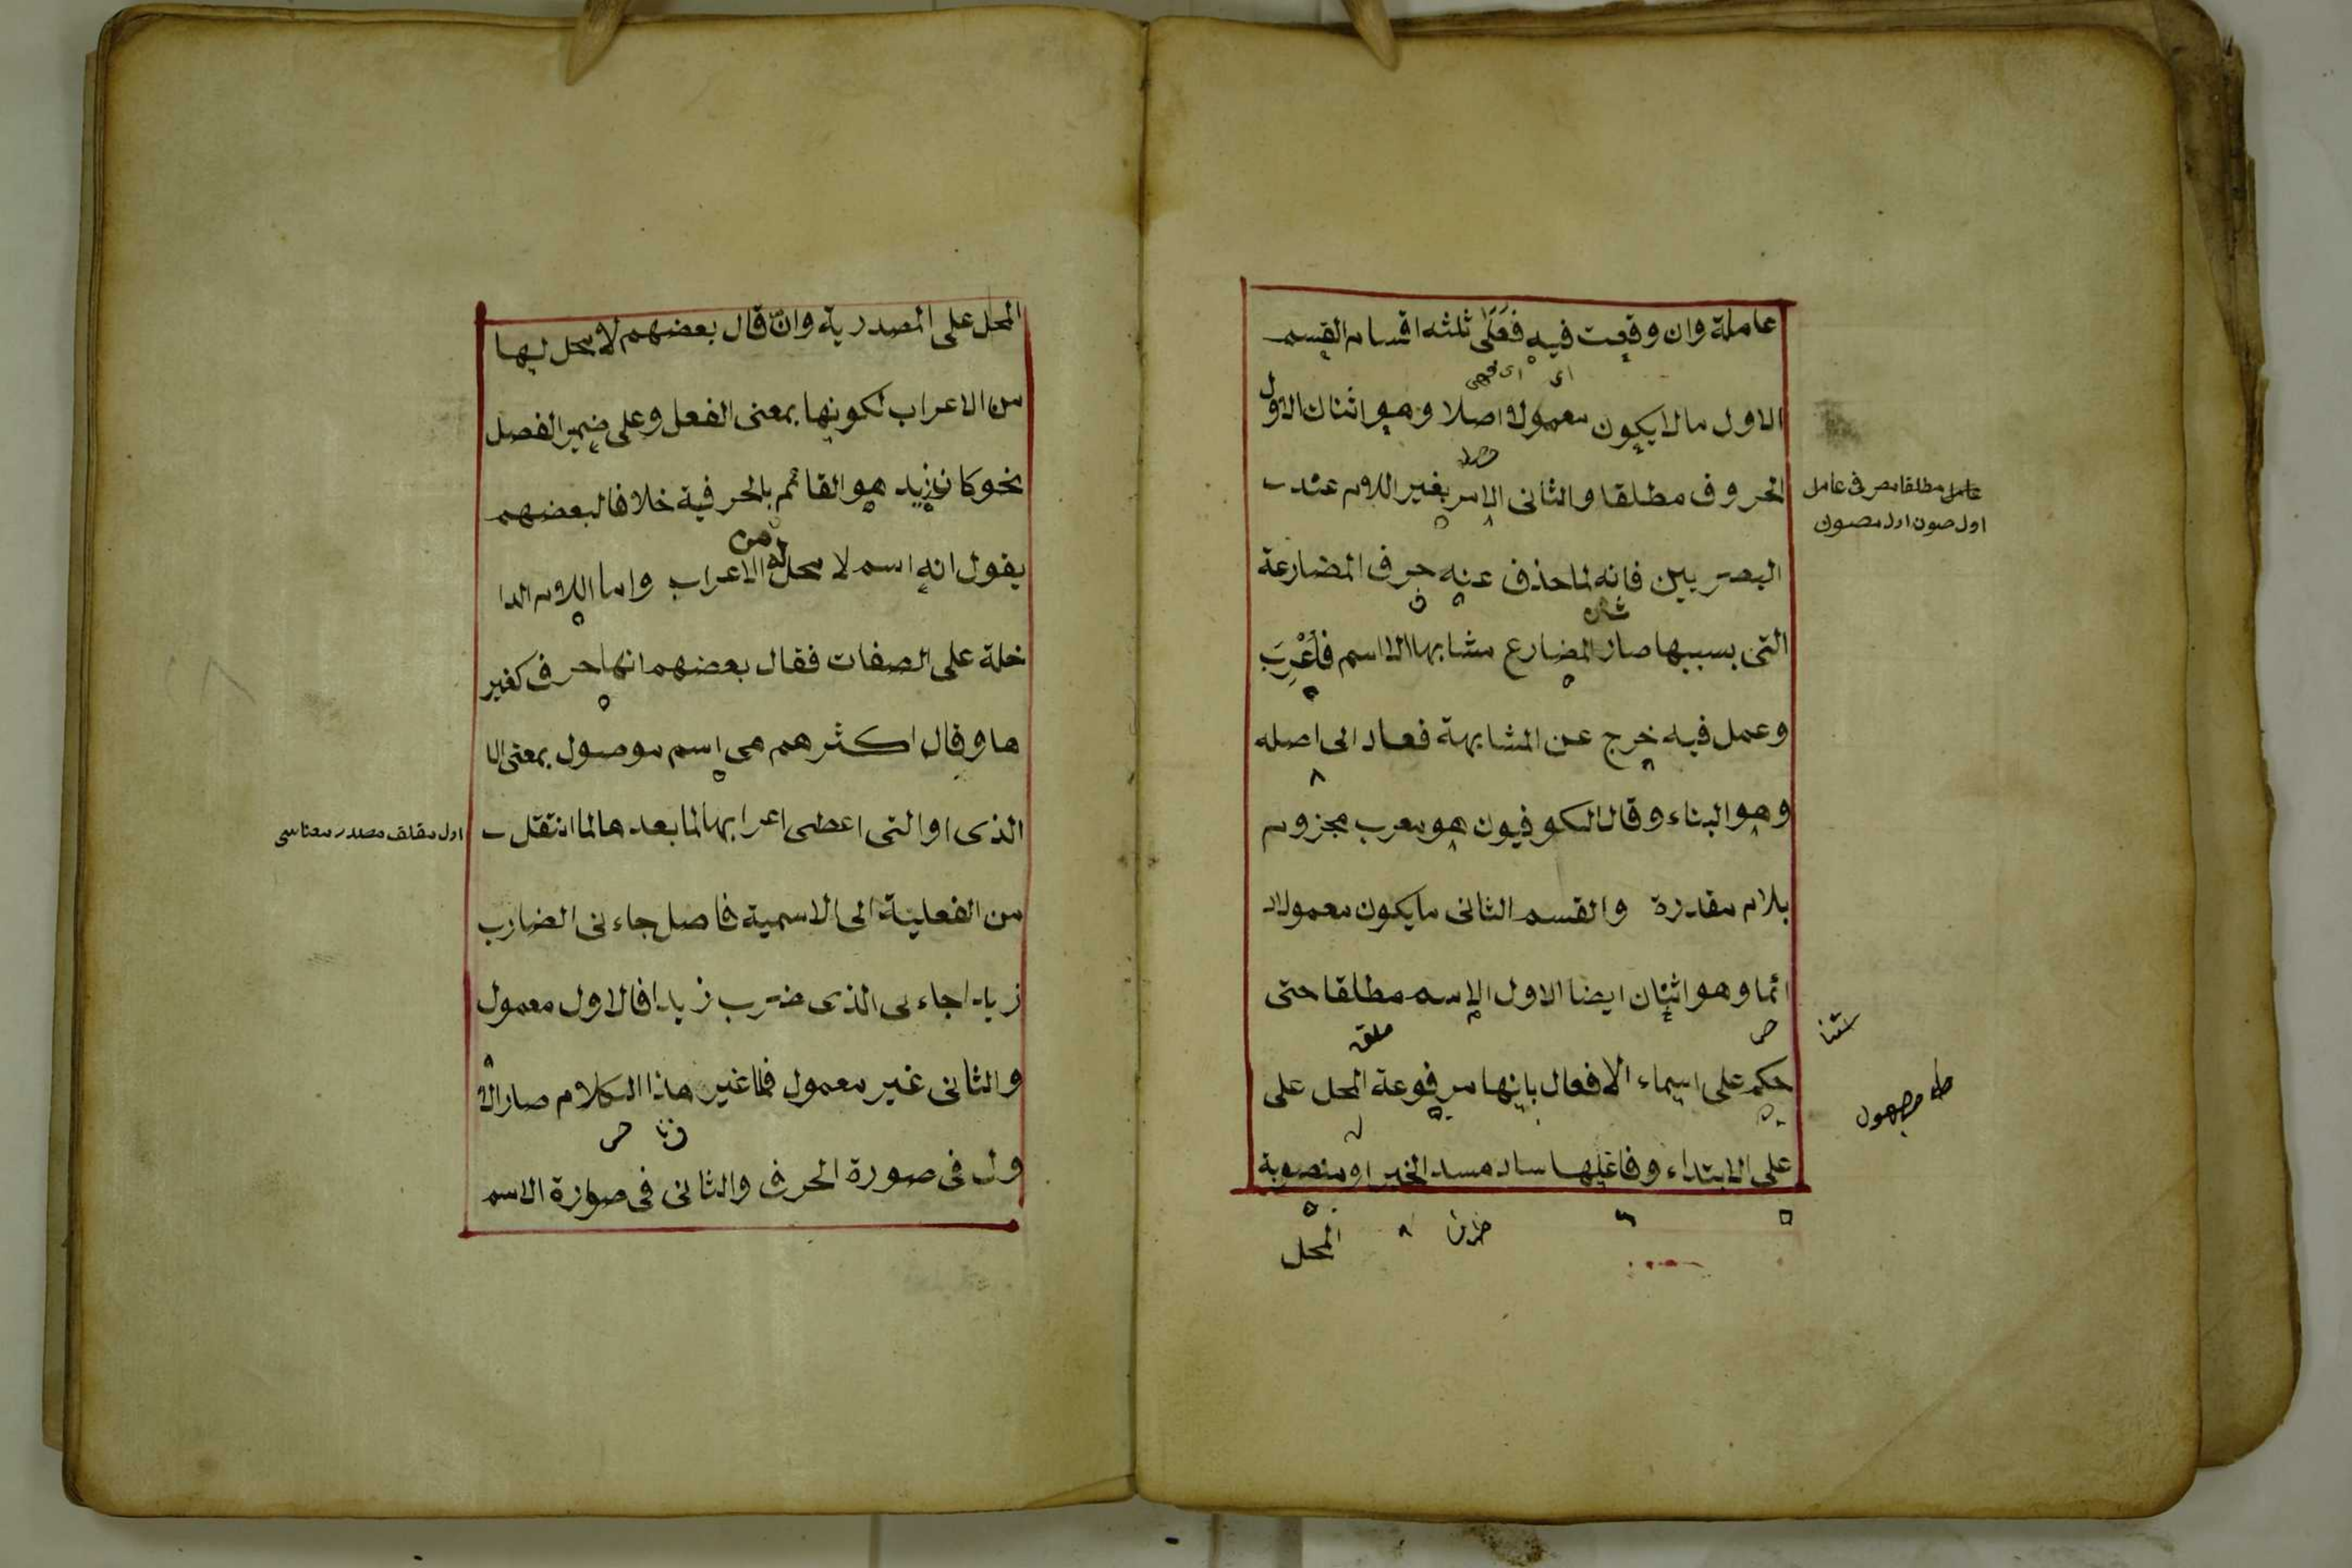 عاملة وان وقعت فيه فعلى ثلثه اقسام القسم
الاول ما لا يكون معمولا اصلا وهو اثنان الاول
الحروف مطلقا والثانى الامر بغير اللام عند
البصريين فانه لما حذف عنه حرف المضارعة
التى بسببها صار المضارع مشابها الا اسم فأعْرِبَ
وعمل فيه خرج عن المشابهة فعاد الى اصله
وهو البناء وقال الكوفيون هو معرب مجزوم
بلام مقدرة والقسم الثانى ما يكون معمولا د
ائما وهو اثنان ايضا الاول الاسم مطلقا حتى
حكم على اسماء الافعال بانها مرفوعة المحل على
على الابتداء وفاعلها ساد مسد الخبر او منصوبة
المحل
مجهول
المحل على المصدرية وان قال بعضهم لا محل لها
من الاعراب لكونها بمعنى الفعل وعلى ضمير الفصل
نحو كان زيد هو القائم بالحرفية خلافا لبعضهم
يقول انه اسم لا محل له من الاعراب واما اللام الدا
خلة على الصفات فقال بعضهم انها حرف كغير
ها وقال اكثرهم هى اسم موصول بمعنى ال
الذى او التى اعطى اعرابها لما بعدها لما انتقل
من الفعلية الى الاسمية فاصل جاءنى الضارب
زيدا جاءنى الذى ضرب زيدا فالاول معمول
والثانى غير معمول فلما غير هذا الكلام صار الا
ول فى صورة الحرف والثانى فى صورة الاسم